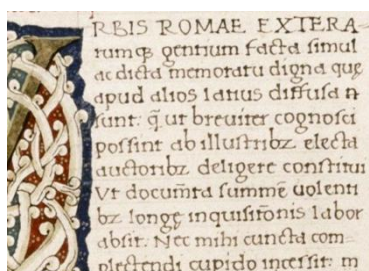 RBIS ROMAE EXTERA-
rumqꝫ gentium facta simul
ac dicta memoratu digna quę
apud alios latius diffusa n̄
sunt: q̄ ut breviter cognosci
possint ab illustribꝫ electa
auctoribꝫ deligere constitui
Vt docum̄ta summe uolenti
bꝫ longę inquisitōnis labor
absit. Nec mihi cuncta com-
plectendi cupido incessit: